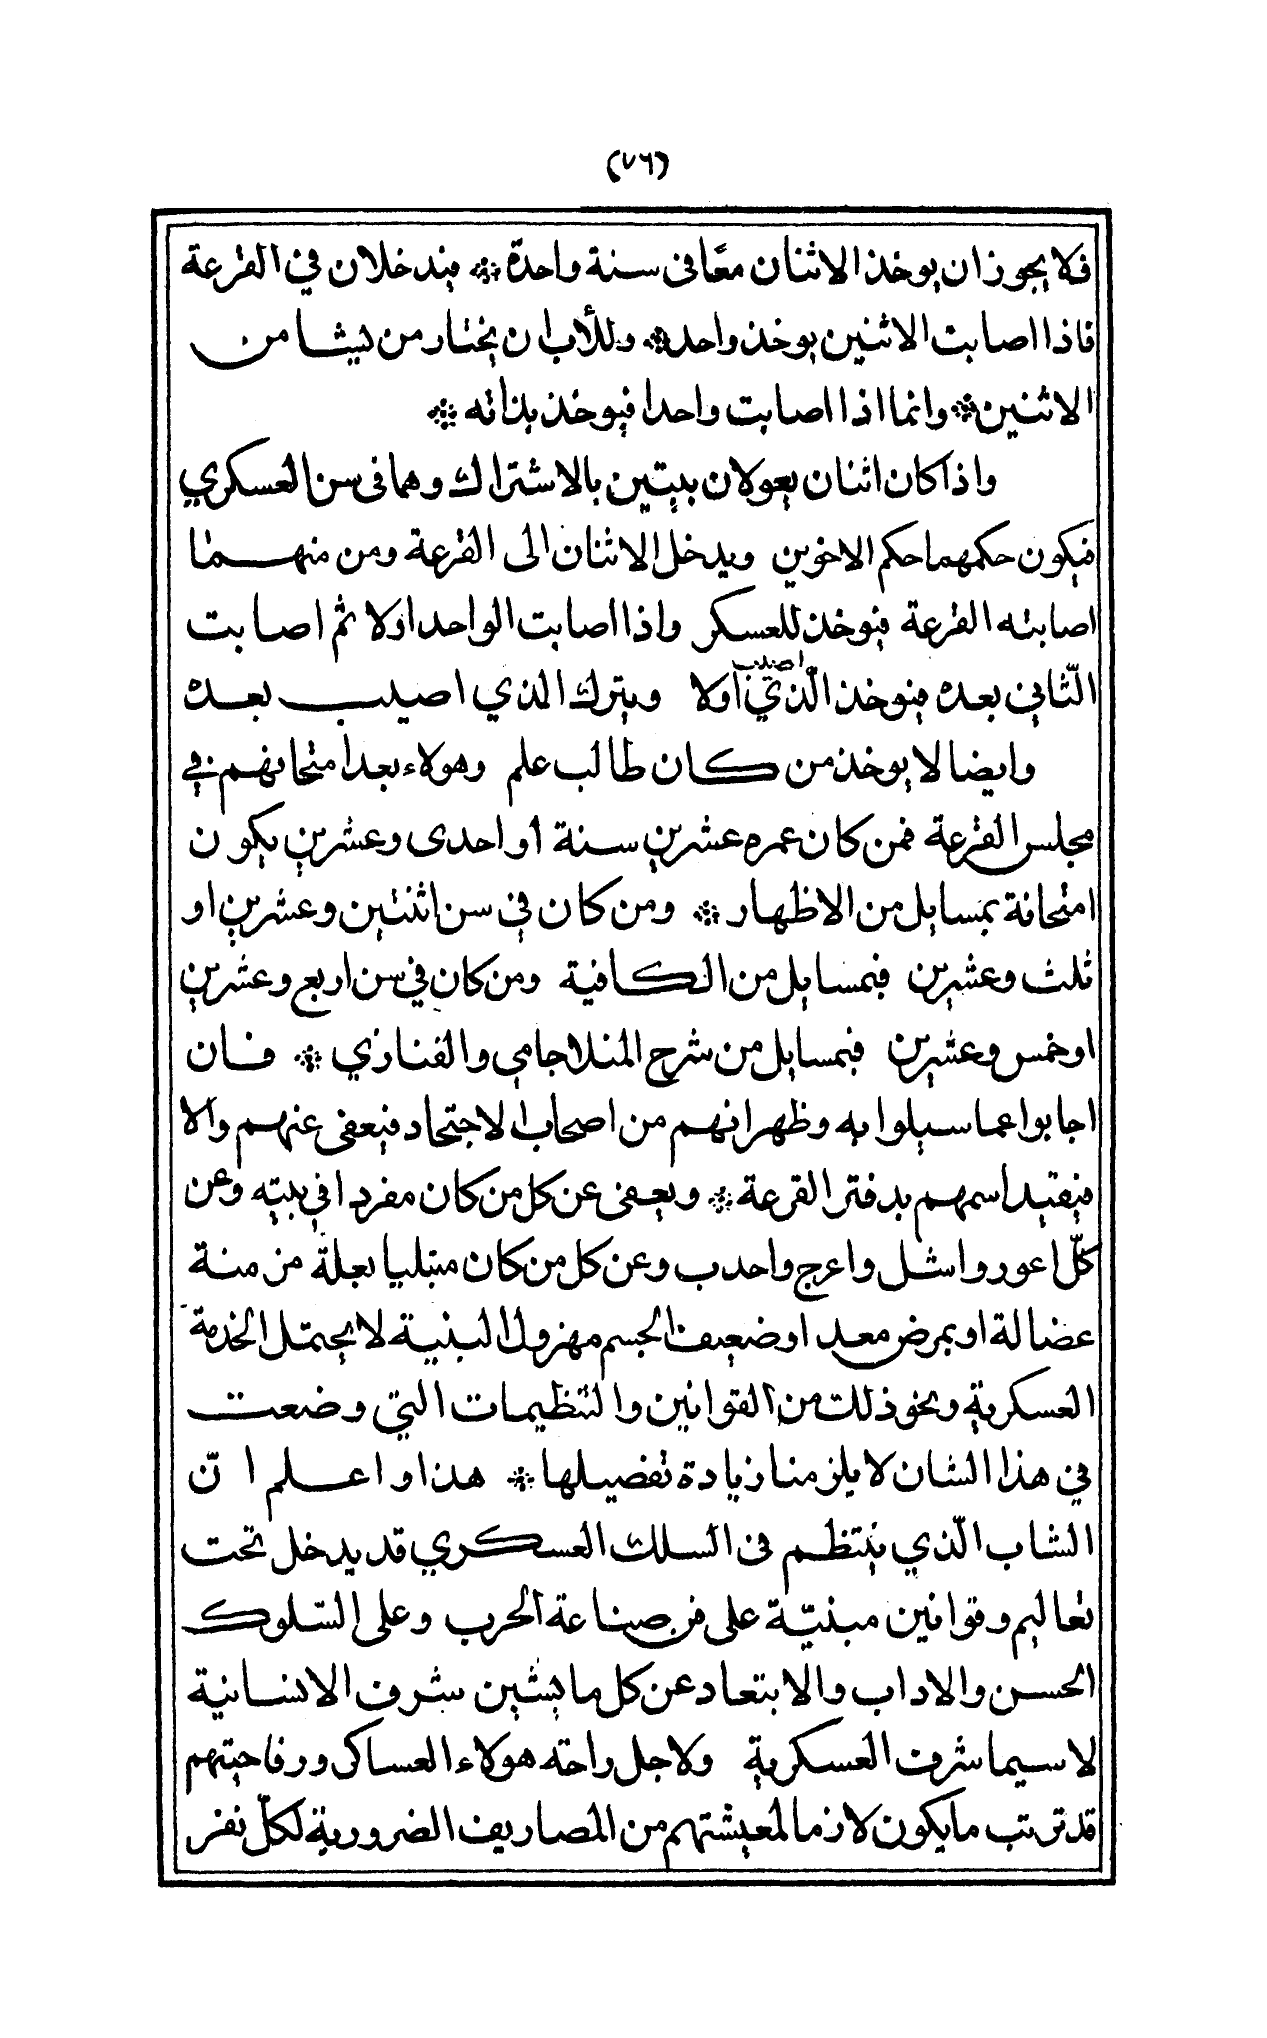 (٧٦)
فلا يجوز ان يوخذ الاثنان معًا فى سنة واحدة ※ فيدخلان في القرعة
فاذا اصابت الاثنين يوخذ واحد※ وللأب ان يختار من يشا من
الاثنين※ وانما اذا اصابت واحدا فيوخذ بذاته ※
واذا كان اثنان يعولان بيتين بالاشتراك وهما فى سن العسكري
فيكون حكمهما حكم الاخوين ويدخل الاثنان الى القرعة ومن منهما
اصابته القرعة فيوخذ للعسكر واذا اصابت الواحد اولا ثم اصابت
الثّاني بعده فيوخذ الّذي اصيب اولا ويترك الذي اصيب بعده
وايضا لا يوخذ من كان طالب علم وهولاء بعد امتحانهم في
مجلس القرعة فمن كان عمره عشرين سنة أو احدى وعشرين يكون
امتحانة بمسايل من الاظهار ※ ومن كان في سن اثنتين وعشرين او
ثلث وعشرين فبمسايل من الكافية ومن كان في سن اربع وعشرين
او خمس وعشرين فبمسايل من شرح المنلا جامي والفناري ※ فان
اجابوا عما سيلوا به وظهر انهم من اصحاب الاجتحاد فيعفى عنهم والا
فيقيد اسمهم بدفتر القرعة ※ ويعفى عن كل من كان مفردا في بيته وعن
كلّ اعور واشل واعرج واحدب وعن كل من كان مبتليا بعلة مزمنة
عضالة او بمرض معد او ضعيف الجسم مهزول البنية لا يحتمل الخدمة
العسكرية ونحو ذلك من القوانين والتنظيمات التي وضعت
في هذا الشان لا يلزمنا زيادة تفصيلها ※ هذا واعلم انّ
الشاب الّذي ينتظم فى السلك العسكري قد يدخل تحت
تعاليم وقوانين مبنيّة على فن صناعة الحرب وعلى السّلوك
الحسن والاداب والابتعاد عن كل ما يشين شرف الانسانية
لا سيما شرف العسكرية ولاجل راحته هولاء العساكر ورفاحيتهم
قد ترتب ما يكون لازما لمعيشتهم من المصاريف الضرورية لكلّ نفر